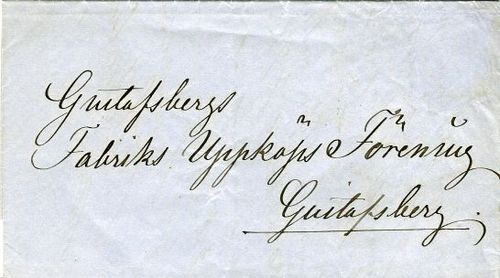 Gustafsbergs
Fabriks Uppköps Förening
Gustafsberg.